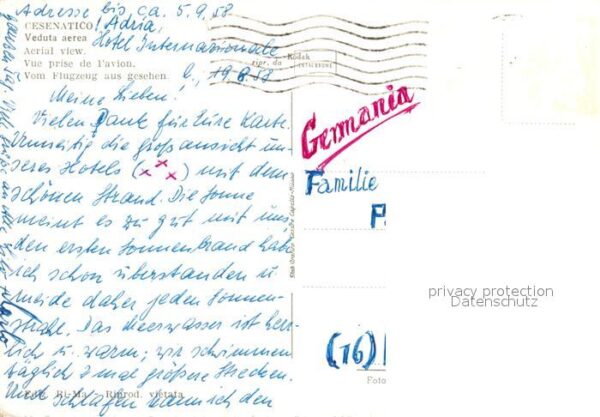 Adresse bis ca. 5.9.58
CESENATICO / Adria,
Veduta aerea
Hotel Internazionale
Aerial view.
Vue prise de l'avion.
Vom Flugzeug aus gesehen.
19.8.58
ripr. da
Kodak
Meine Lieben!
Vielen Dank für Eure Karte.
Umseitig die Großansicht un-
seres Hotels (xxx) mit dem
schönen Strand. Die Sonne
meint es zu gut mit uns,
den ersten Sonnenbrand habe
ich schon überstanden u.
meide daher jeden Sonnen-
strahl. Das Meerwasser ist herr-
lich u. warm; wir schwimmen
täglich 3 mal größere Strecken.
Und schlafen kann ich den
Ediz. Bi-Ma - Riprod. vietata
Germania
Familie
privacy protection
Datenschutz
(16)
Foto